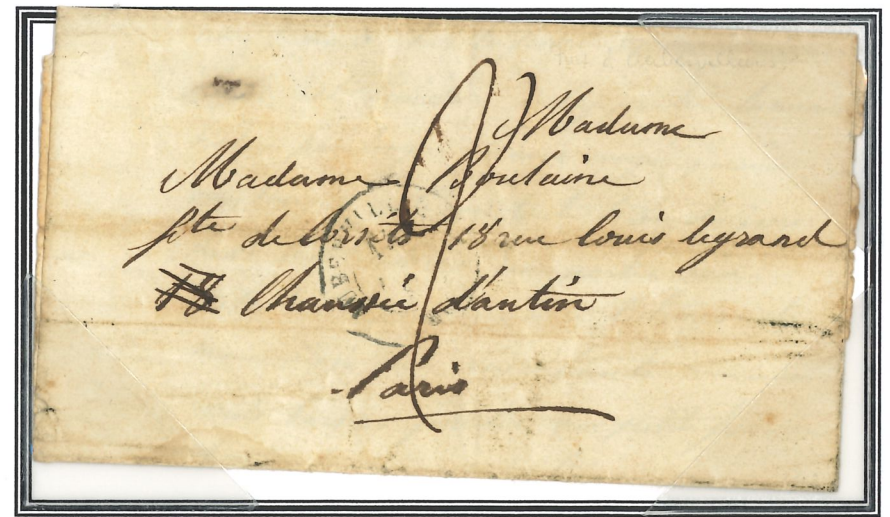 Madame
Madame Poulaine
fte de Corsets 18 rue louis legrand
18 Chaussée d'antin
Paris